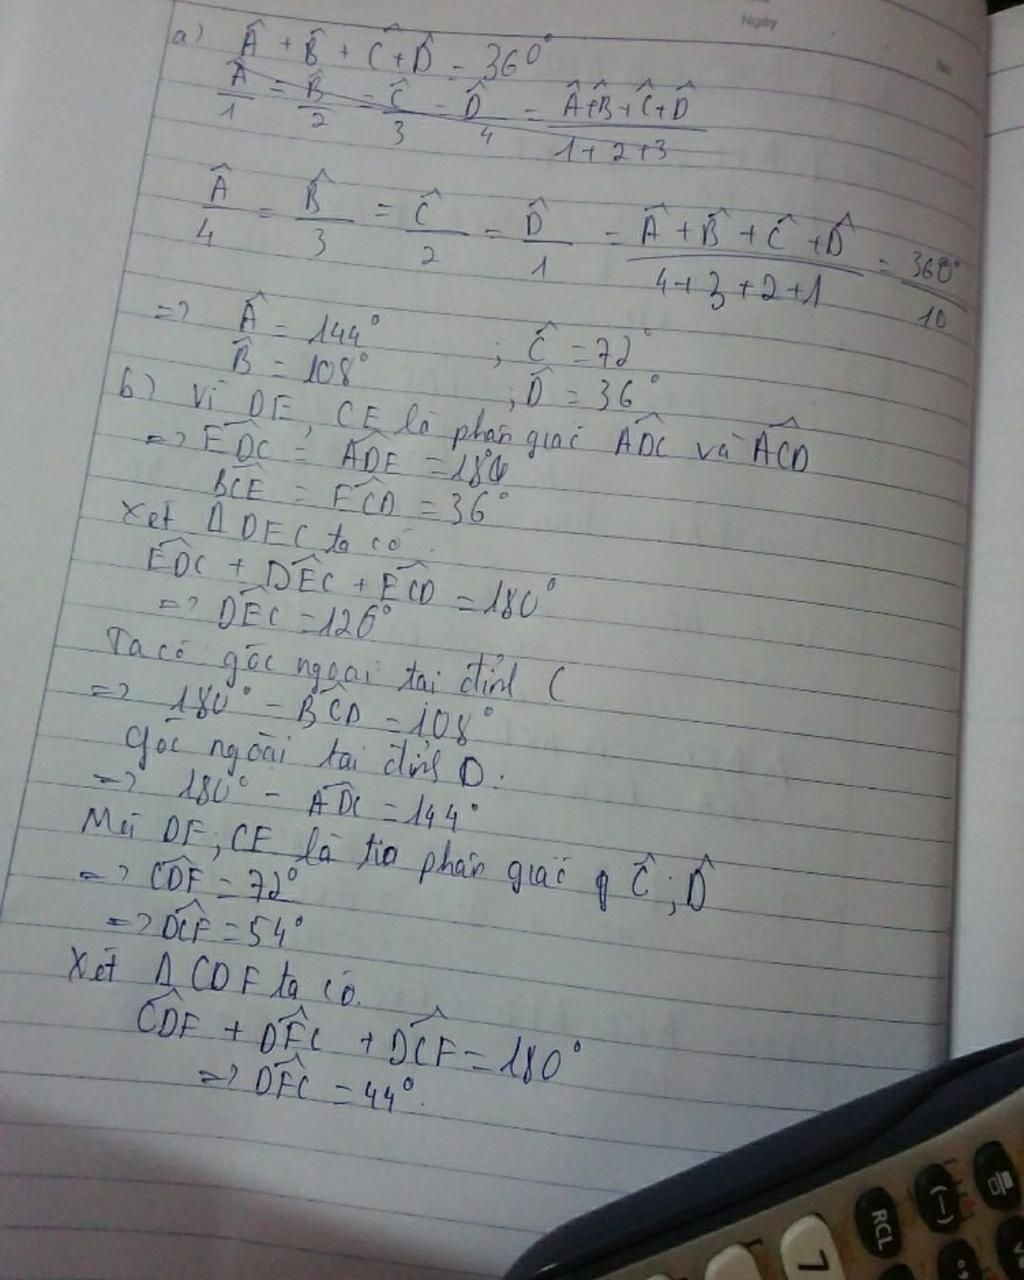 Ngày
a) Â + B̂ + Ĉ + D̂ = 360°
Â/1 = B̂/2 = Ĉ/3 = D̂/4 = (Â+B̂+Ĉ+D̂)/(1+2+3)
Â/4 = B̂/3 = Ĉ/2 = D̂/1 = (Â+B̂+Ĉ+D̂)/(4+3+2+1) = 360°/10
=> Â = 144° ; Ĉ = 72°
B̂ = 108° ; D̂ = 36°
b) Vì DE, CE là phân giác ADC và ACD
=> EDC = ADE = 18°
BCE = ECD = 36°
Xét Δ DEC ta có
EDC + DEC + ECD = 180°
=> DEC = 126°
Ta có góc ngoài tại đỉnh C
=> 180° - BCD = 108°
Góc ngoài tại đỉnh D.
=> 180° - ADC = 144°
Mà DF; CF là tia phân giác Ĉ; D̂
=> CDF = 72°
=> DCF = 54°
Xét Δ CDF ta có.
CDF + DFC + DCF = 180°
=> DFC = 44°.
RCL
(-)
7